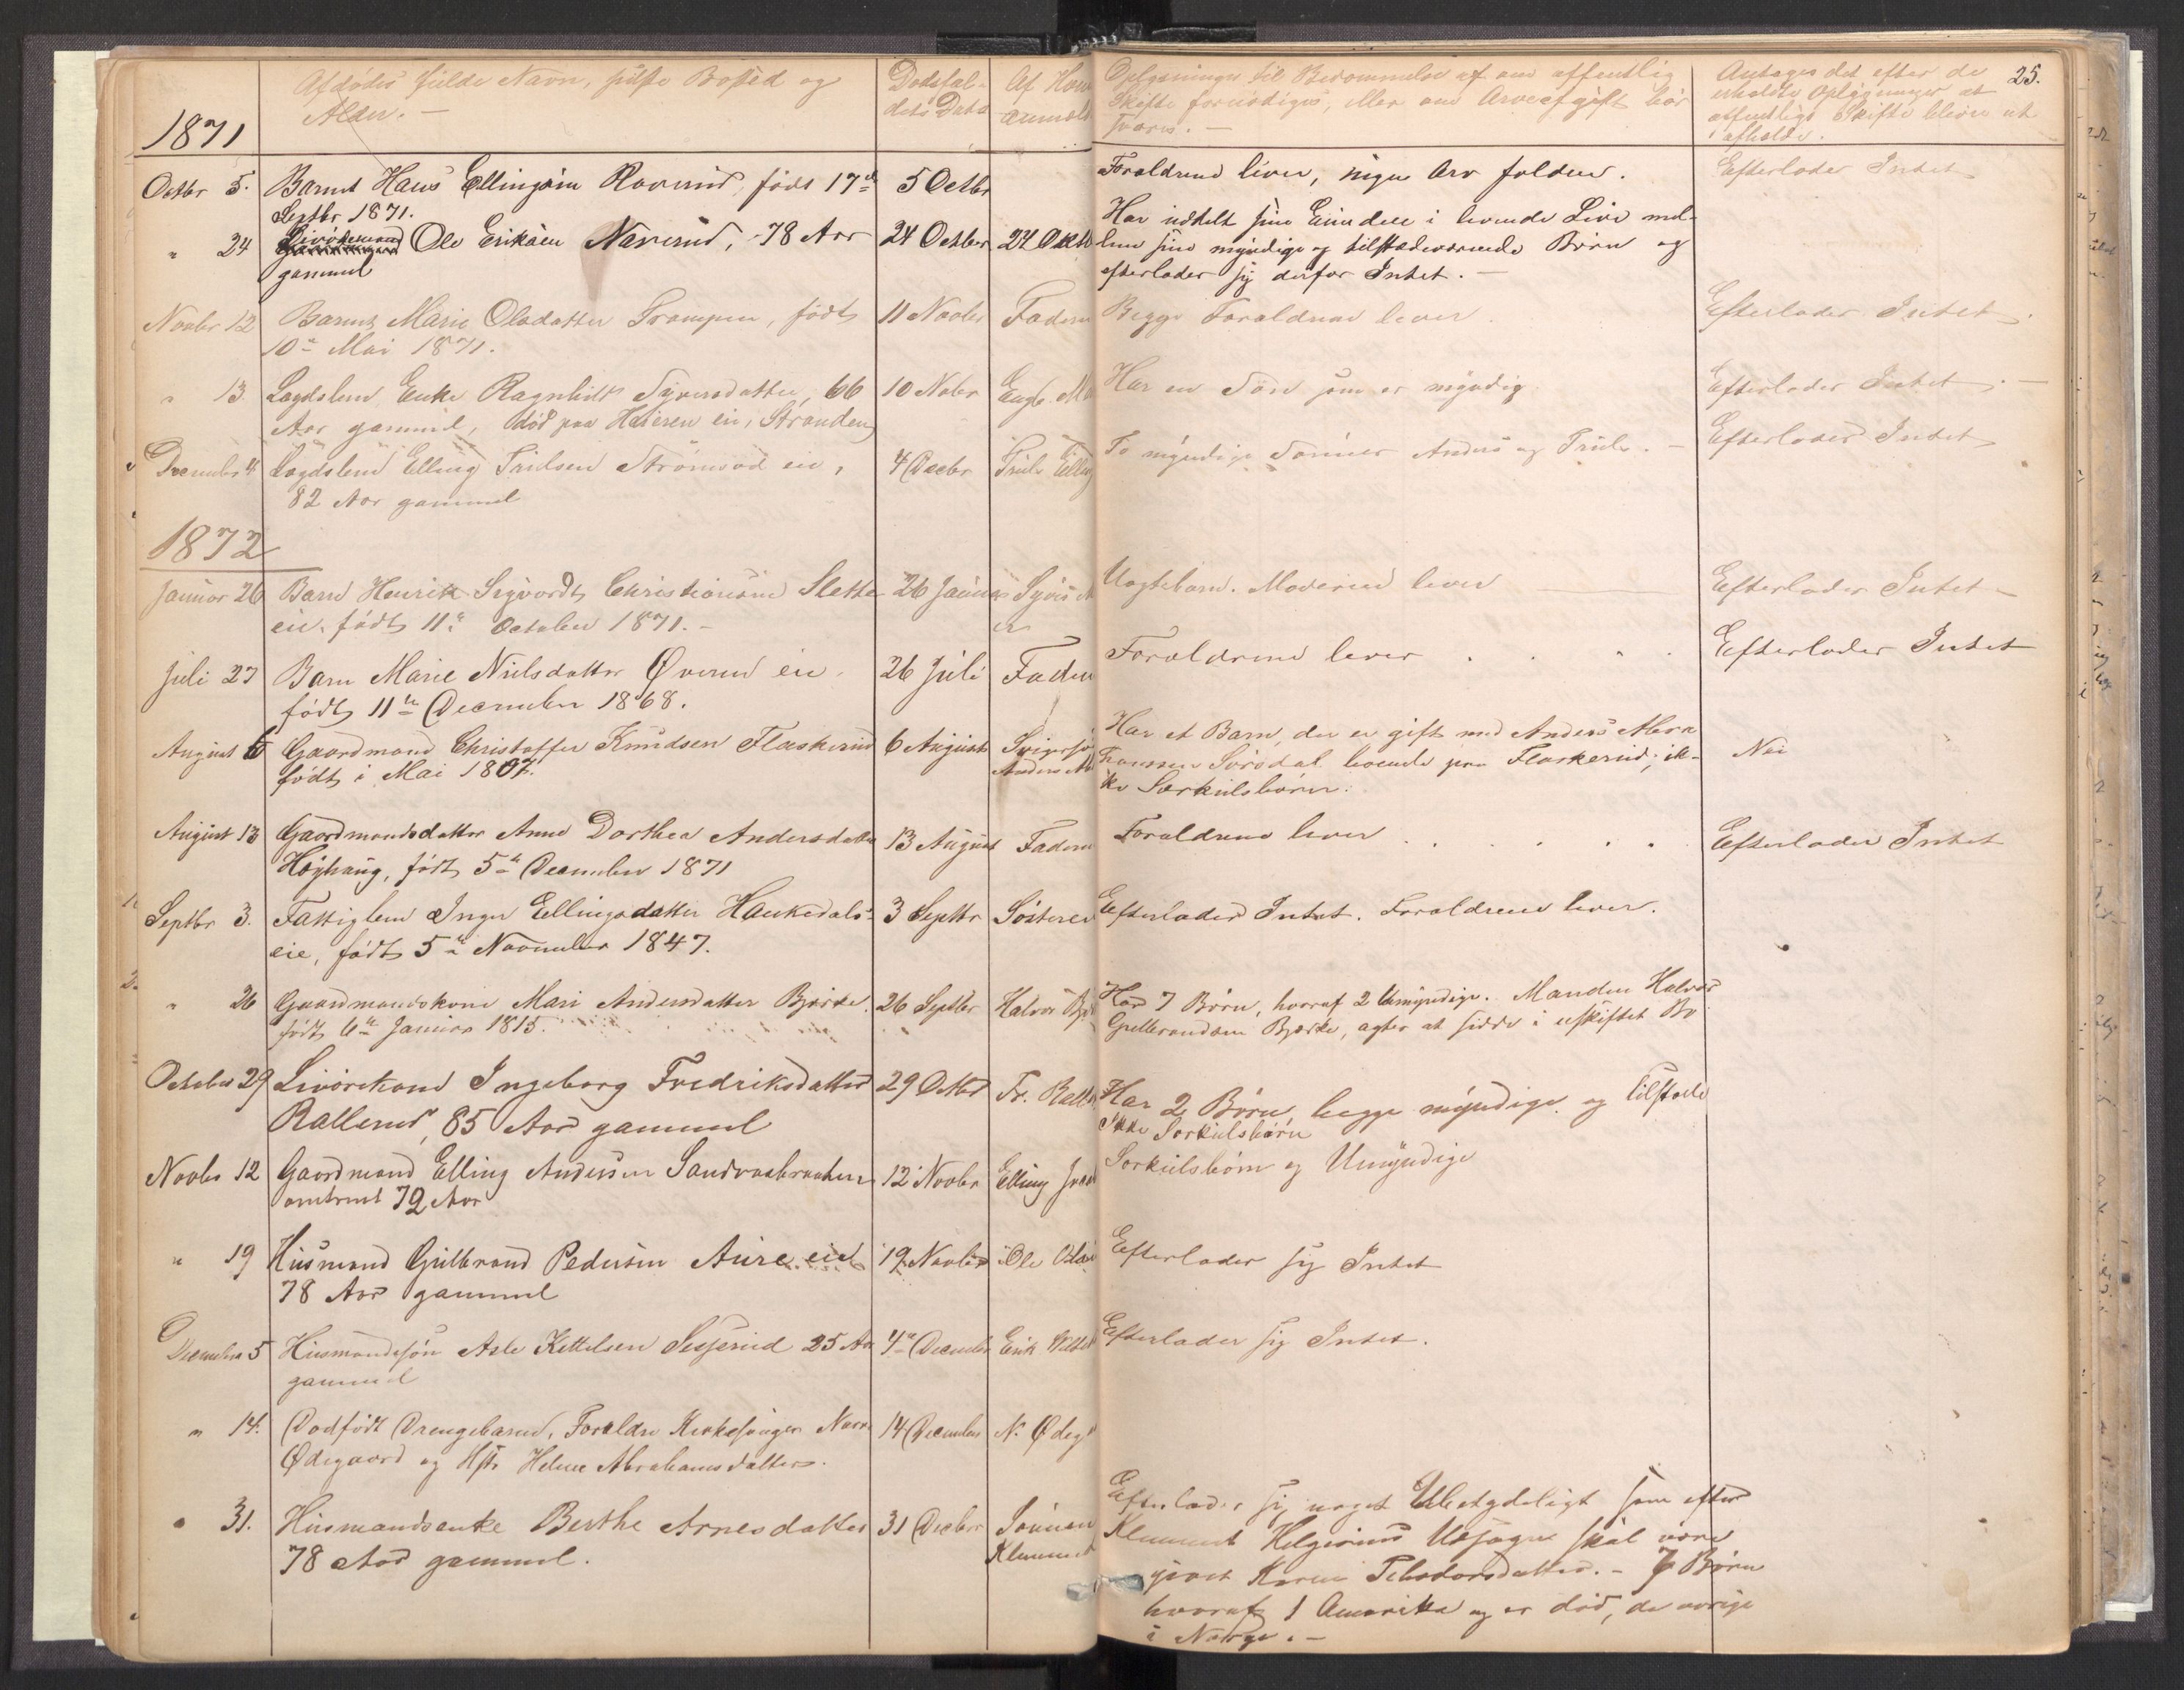 25.
Afdødes fulde Navn, sidste Bosted og
Alder. —
Dødsfal-
dets Dato
Af Hvem
anmeldt
Oplysninger til Bedømmelse af om offentlig
Skifte fornødiges, eller om Arveafgift bør
svares. —
Antages det efter de
erholdte Oplysninger at
offentligt Skifte bliver at
afholde.
1871
Octbr 5. Barnet Hans Ellingsen Raverud, født 17de 5 Octbr Forældrene lever, ingen Arv falden. Efterlader Intet
Septbr 1871.
" 24 Ole Eriksen Nærerud, 78 Aar 24 Octbr 24 Octb Har uddelt sine Eiendele i levende Live mel-
gammel
lem sine myndige og tilstedeværende Børn og
efterlader sig derfor Intet. —
Novbr 12 Barnet Marie Olsdatter Trampen, født 11 Novbr Faderen Begge Forældrene lever. Efterlader Intet.
10de Mai 1871.
" 13. Lægdslem Enke Ragnhild Syversdatter, 66 10 Nobr Har en Søn som er myndig. Efterlader Intet. —
Aar gammel, død paa eie, Stranden
December 4 Lægdslem Elling Trulsen Strømsod eie, 4 Decbr Truls Elling To myndige Sønner Anders og Truls. — Efterlader Intet
82 Aar gammel
1872
Januar 26 Barn Henrik Sigvardt Christiansen Slette 26 Januar Moderen lever Efterlader Intet —
eie, født 11te October 1871. —
Juli 27 Barn Marie Nielsdatter Øverud eie. 26 Juli Faderen Forældrene lever . . . . Efterlader Intet
født 11te December 1868.
August 6 Gaardmand Christoffer Knudsen Flaskerud 6 August Svigersøn Har et Barn, der er gift med Anders Abra
født i Mai 1807. Anders Ab hamsen Sørsdal boende paa Flaskerud; ik- Nei
ke Særkulsbørn.
August 13 Gaardmandsdatter Anne Dorthea Andersdatter 13 August Faderen Forældrene lever . . . . . Efterlader Intet
Høyhaug, født 5te December 1871
Septbr 3. Fattiglem Inger Ellingsdatter Haukedals- 3 Septbr Søsteren Efterlader Intet. Forældrene lever.
eie, født 5te November 1847.
" 26 Gaardmandskone Mari Andersdatter Bjerke. 26 Septbr Halvor Bje Har 7 Børn, hvoraf 2 Umyndige. Manden Halvor
født 6te Januar 1815. Gulbrandsen Bjerke, agter at sidde i uskiftet Bo
October 29 Livørekone Ingeborg Fredriksdatter 29 Octbr Fr. Rall Har 2 Børn, begge myndige og tilstede
Rallerud, 85 Aar gammel Ikke Særkulsbørn
Novbr 12 Gaardmand Elling Andersen Sandvasbraaten 12 Novbr Elling Særkulsbørn og Umyndige
omtrent 72 Aar
" 19 Husmand Gulbrand Pedersen Aure eie 19 Novbr Ole Efterlader sig Intet
78 Aar gammel
December 5 Husmandssøn Asle Kettelsen Sesserud 25 Aar 4de December Erik Efterlader sig Intet.
gammel
" 14. Dødfødt Drengebarn, Forældre Kirkesanger 14 December N. Ødeg
Ødegaard og Hstr Helene Abrahamsdatter.
" 31. Husmandsenke Berthe Arnesdatter 31 Decbr Sønnen Efterlader sig noget Ubetydeligt som efter
78 Aar gammel. Klemmet Klemmet Helgeruds Udsagn skal være
givet Karen . — 7 Børn
hvoraf 1 Amerika og er død, de øvrige
i Norge. —